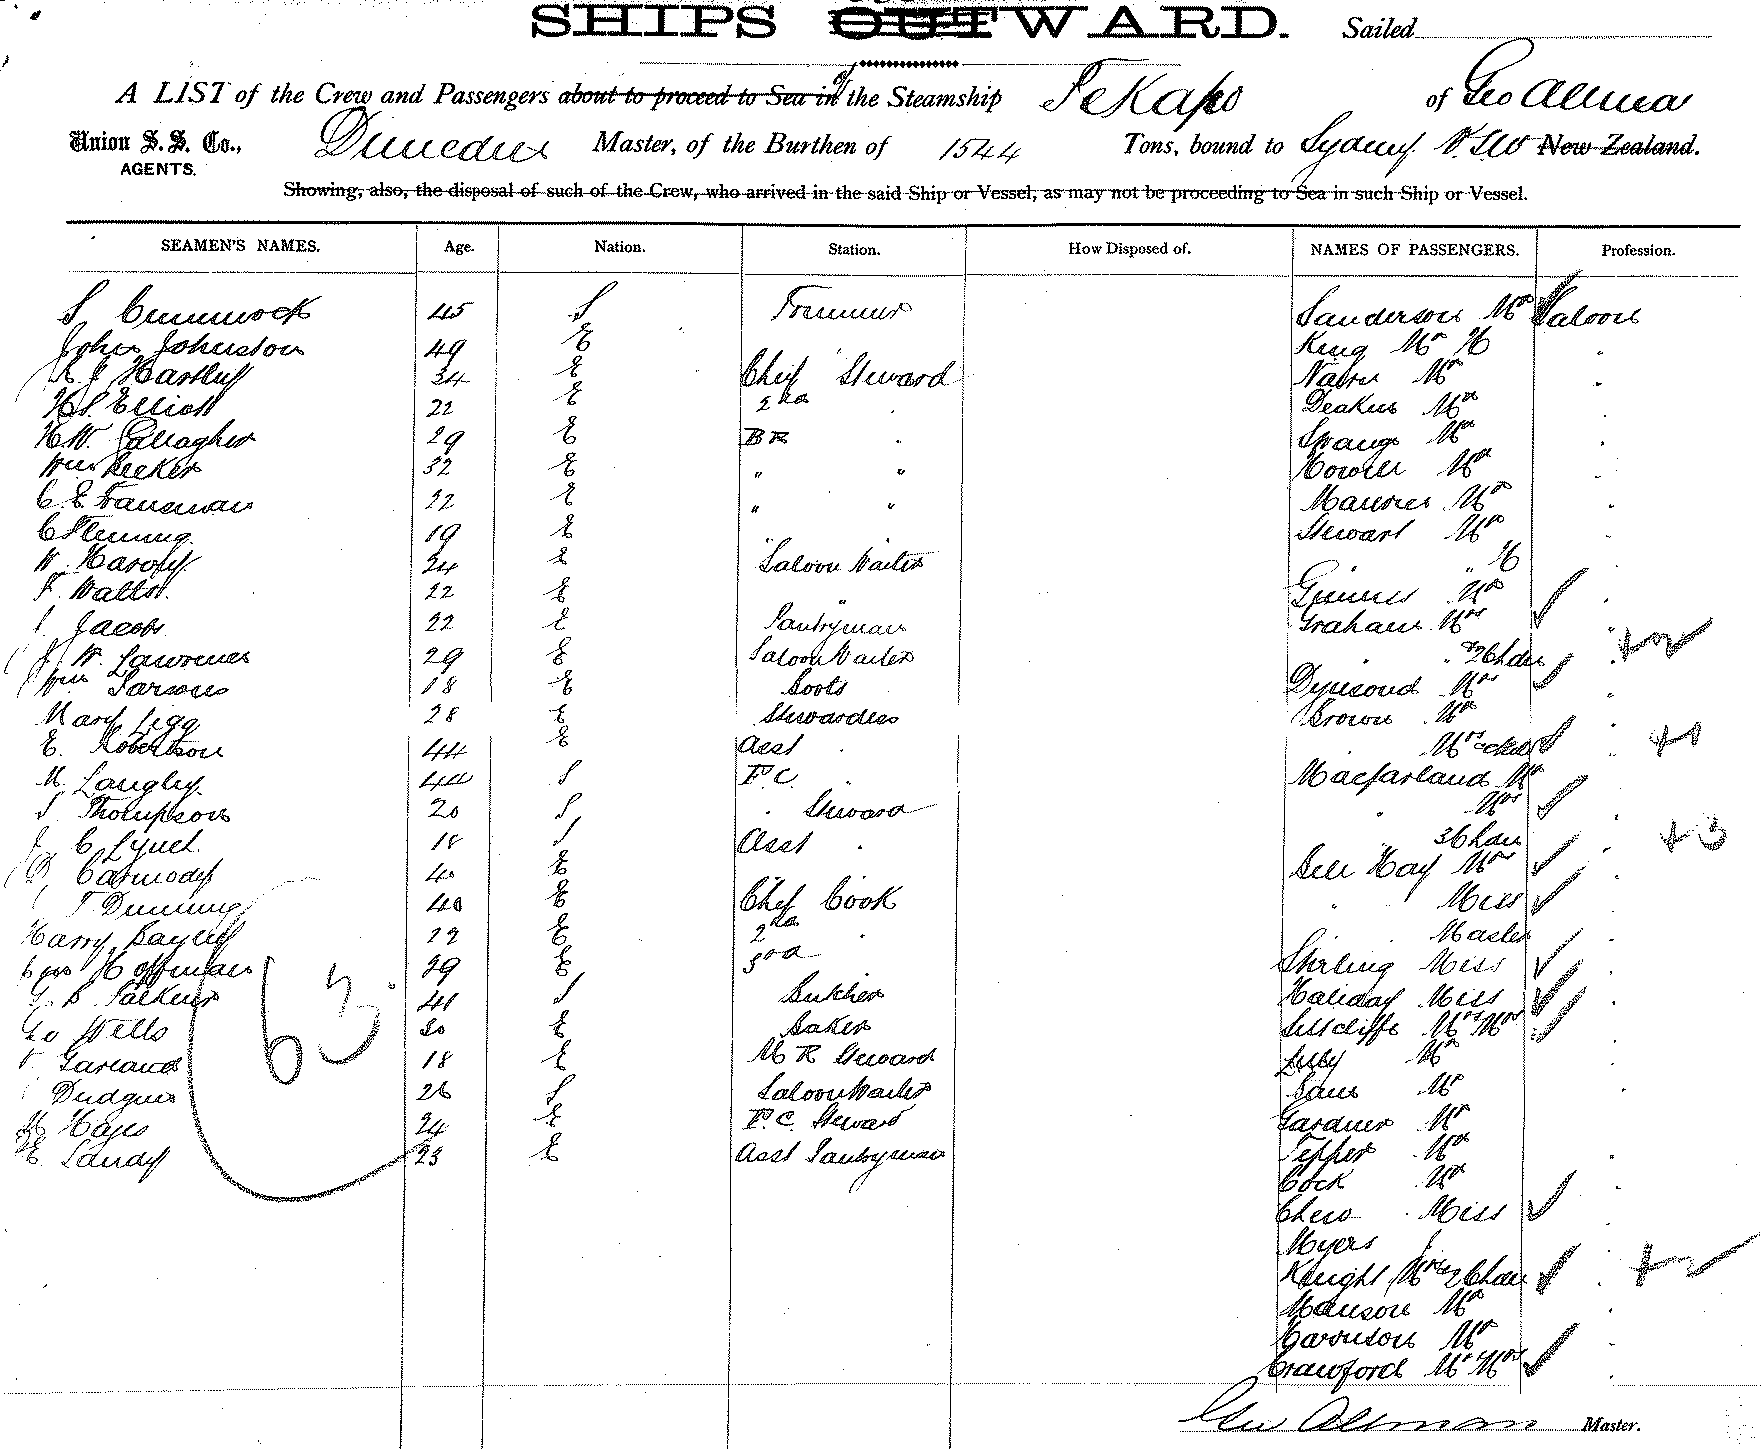 SHIPS OUTWARD. Sailed
A LIST of the Crew and Passengers about to proceed to Sea in of the Steamship TeKapo of Geo Allman
Union S. S. Co., AGENTS. Dunedin Master, of the Burthen of 1544 Tons, bound to Sydney N.S.W New Zealand.
Showing, also, the disposal of such of the Crew, who arrived in the said Ship or Vessel, as may not be proceeding to Sea in such Ship or Vessel.
SEAMEN'S NAMES. Age. Nation. Station. How Disposed of. NAMES OF PASSENGERS. Profession.
S 45 S Trimmer Sanderson Mr Saloon
John Johnston 49 E King Mr H
34 E Chief Steward Nairn Mr
H S Elliott 22 E 2nd Deakin Mr
H W. Gallagher 29 E BR Mr
Wm 32 E " " Howell Mr
C E 22 E " " Mr
C Fleming. 19 E Stewart Mr
W Hardy 24 E Saloon Waiter " H
F. Watts. 22 E " Mr
Jacobs 22 E Pantryman Graham Mrs
J W. Lawrence 29 E Saloon Waiter " " & 2 Chdn +2
Wm Parsons 18 E Boots Mrs
Mary Legg 28 E Stewardess Brown Mr
E. Robertson 44 E Asst Mrs & Chd +1
M Langley. 44 S F.C. Macfarland Mr
S Thompson 20 S Steward Mrs
C Lynch. 18 S Asst 3 Chdn +3
D Carmody 40 E Hay Mrs
T Dunning 40 E Chief Cook " Miss
Harry Bayley 22 E 2nd Master
Hoffman 29 E 3rd Stirling Miss
41 S Butcher Haliday Miss
Geo Wells 30 E Baker Sutcliffe Mr & Mrs
Garland 18 E M R Steward Mr
26 S Saloon Waiter Mr
Hays 24 E F.C. Steward Gardner Mr
E. Sandy 23 E Asst Pantryman Tepper Mr
63
Cock Mr
Chew Miss
Myers
Knight Mrs & 2 Chdn +2
Manson Mr
Mr
Crawford Mr Mrs
Geo Allman Master.